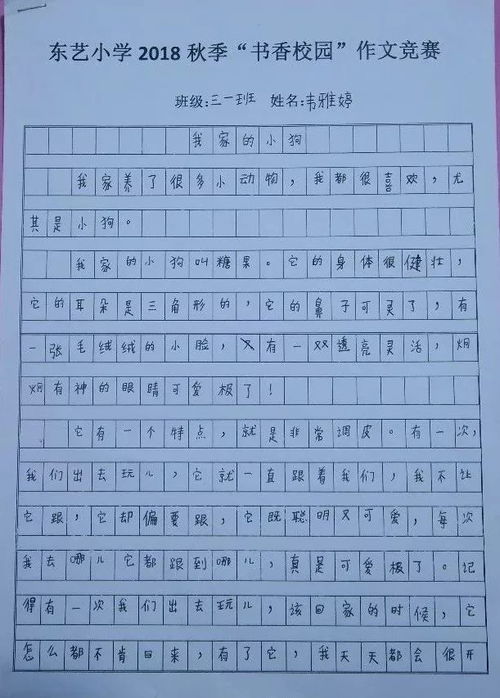 东艺小学2018秋季“书香校园”作文竞赛
班级:三一班 姓名:韦雅婷
我家的小狗
我家养了很多小动物，我都很喜欢，尤
其是小狗。
我家的小狗叫糖果。它的身体很健壮，
它的耳朵是三角形的，它的鼻子可灵了，有
一张毛绒绒的小脸，又有一双透亮灵活，炯
炯有神的眼睛可爱极了！
它有一个特点，就是非常调皮。有一次，
我们出去玩儿，它就一直跟着我们，我不让
它跟，它却偏要跟，它既聪明又可爱，每次
我去哪儿它都跟到哪儿，真是可爱极了。记
得有一次我们出去玩儿，该回家的时候，它
怎么都不肯回来，有了它，我天天都会很开